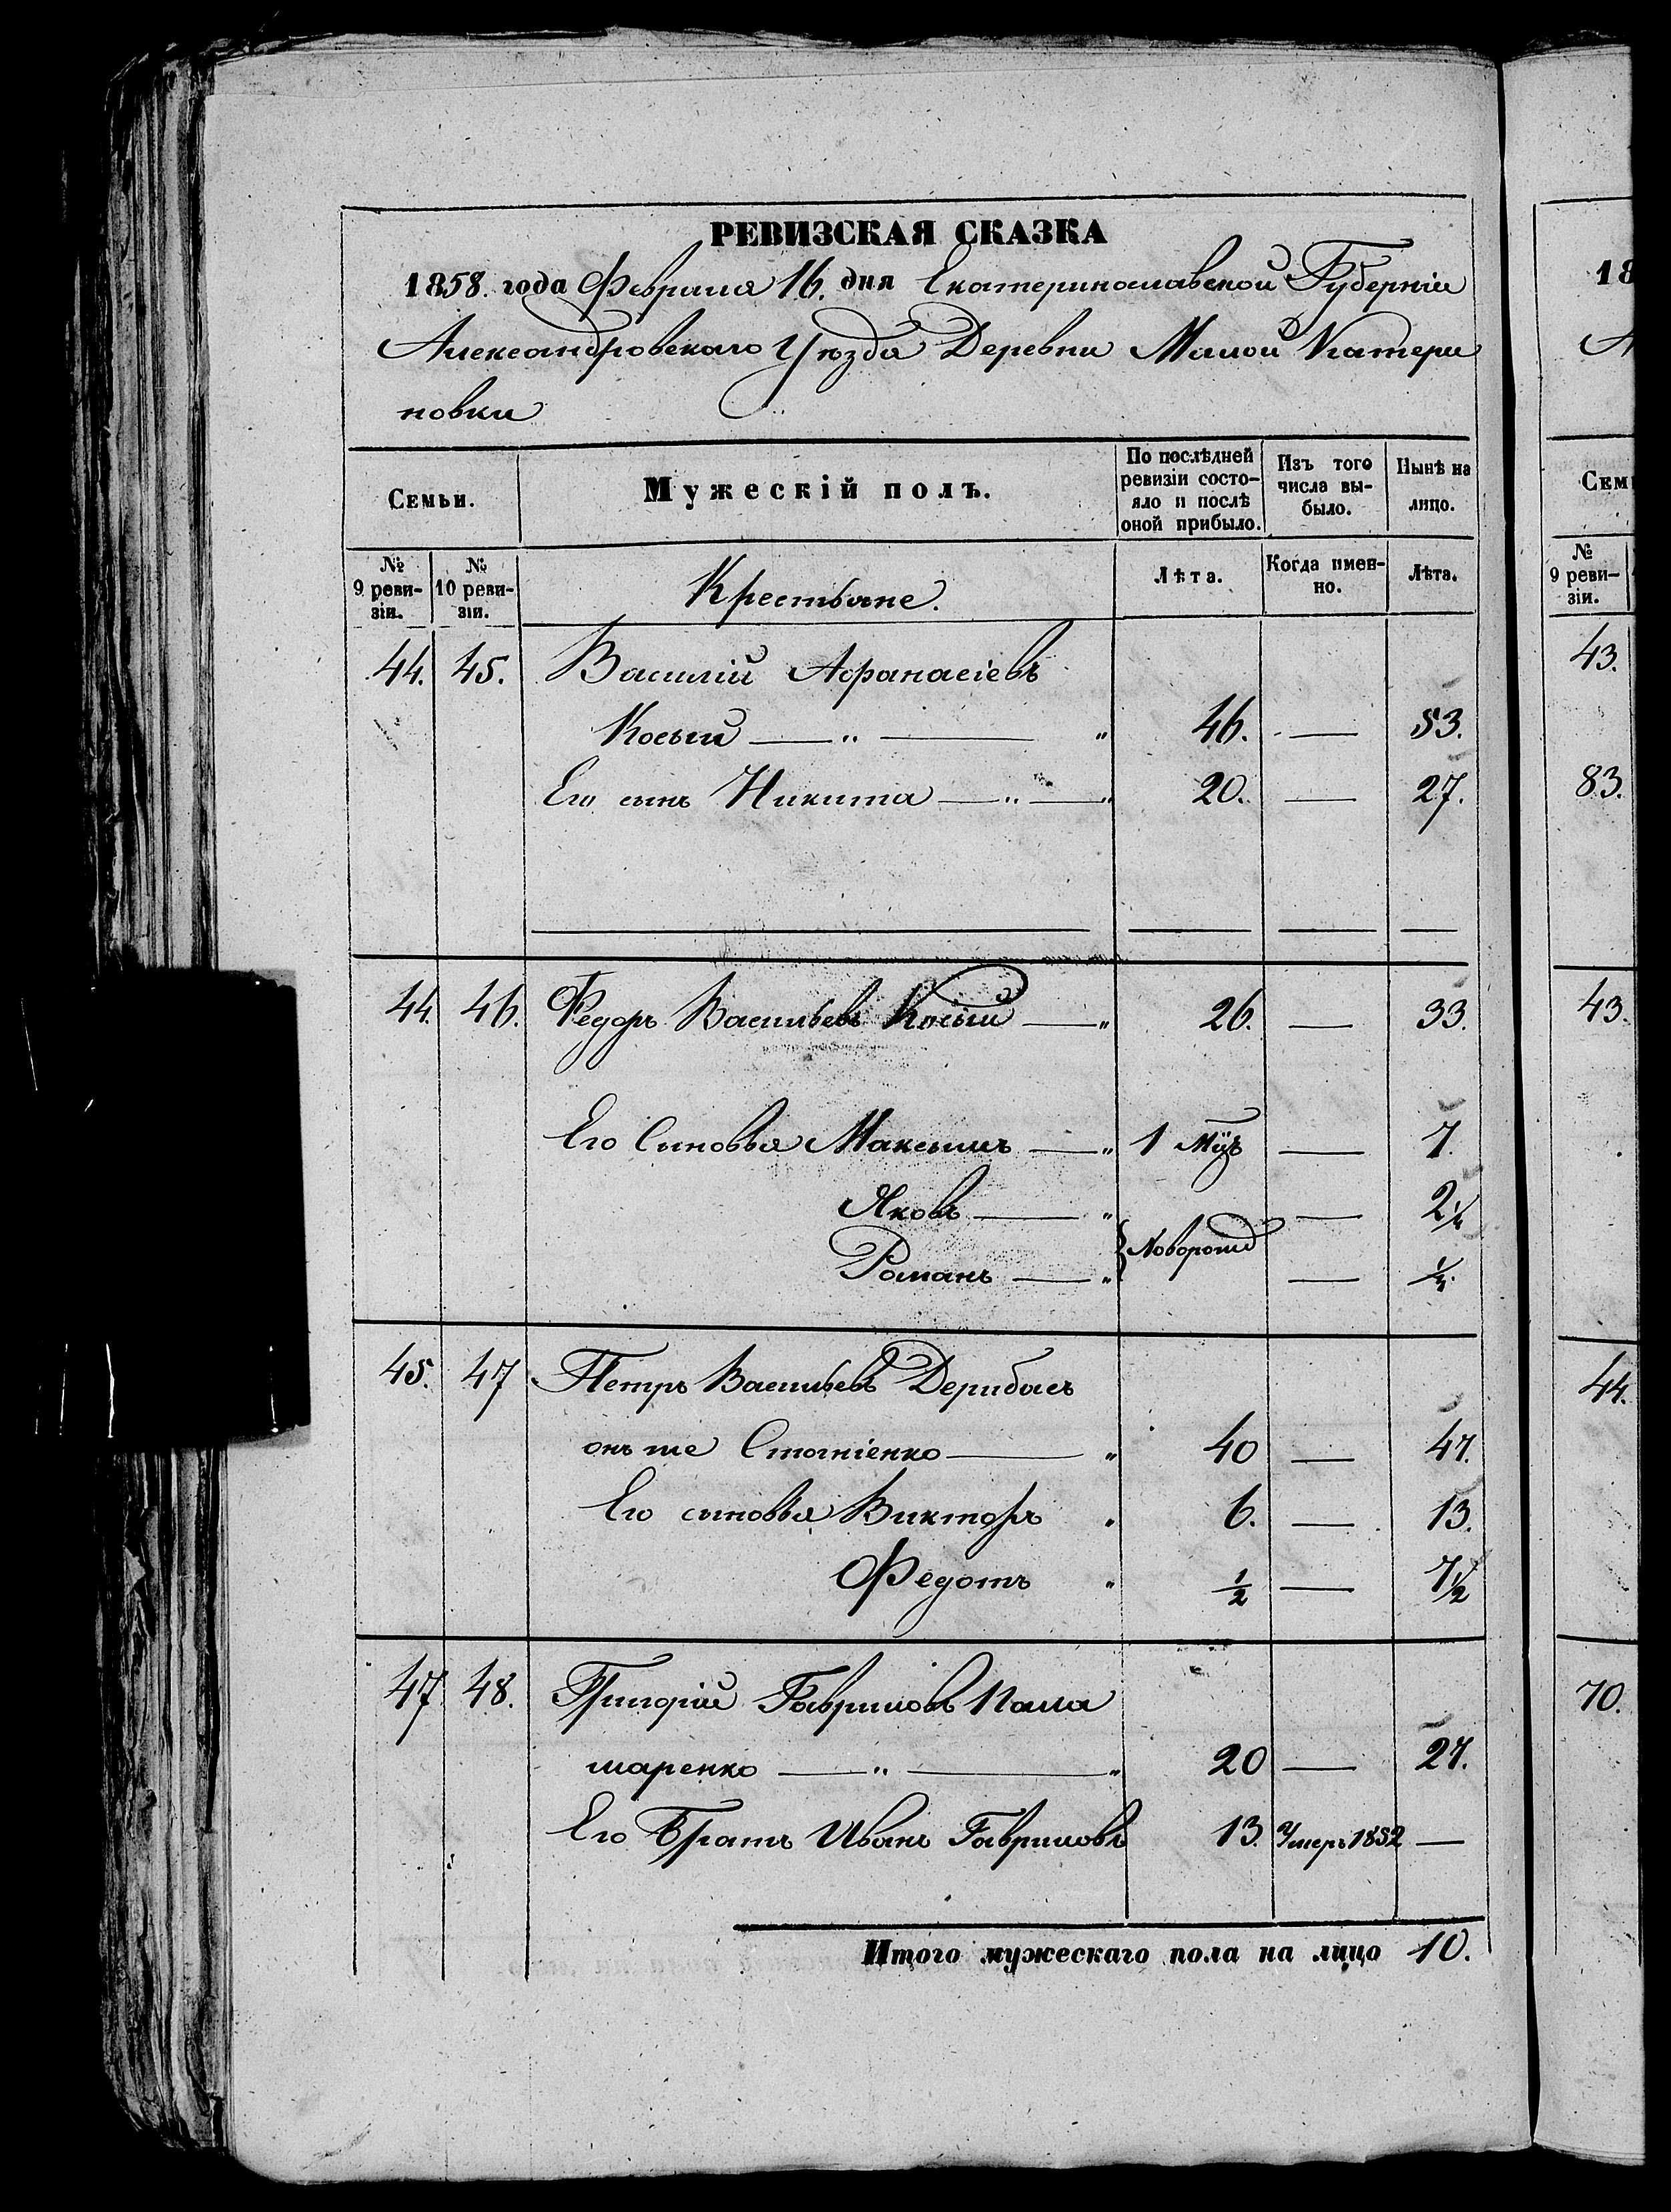 РЕВИЗСКАЯ СКАЗКА
1858. года Февраля 16. дня Екатеринославской Губерніи
Александровскаго Уѣзда Деревни Малой Катери
новки
Семьи.
Мужескій полъ.
По послѣдней ревизіи состо-
яло и послѣ
оной прибыло.
Изъ того
числа вы-
было.
Нынѣ на
лицо.
№ 9 реви-
зіи.
№ 10 реви-
зіи.
Крестьяне.
Лѣта.
Когда имен-
но.
Лѣта.
44. 45. Василій Афанасіевъ
Косый — „ — „ 46. — 53.
Его сынъ Никита — „ — „ 20. — 27.
44. 46. Федоръ Васильевъ Косый — „ 26. — 33.
Его Сыновья Максымъ — „ 1 мцъ — 7.
Яковъ — „ — 2¼
Новорожд
Романъ — „ —
45. 47 Петръ Васильевъ Дерибасъ
онъ же Стогніенко — „ 40 — 47.
Его сыновья Викторъ „ 6. — 13.
Федотъ „ ½ — 7½
47 48. Григорій Гавриловъ Пала
шаренко — „ — „ 20 — 27.
Его Братъ Иванъ Гавриловъ 13. Умеръ 1852 —
Итого мужескаго пола на лицо 10.
18
А
Сем
№
9 реви-
зіи.
43.
83.
43.
44.
70.